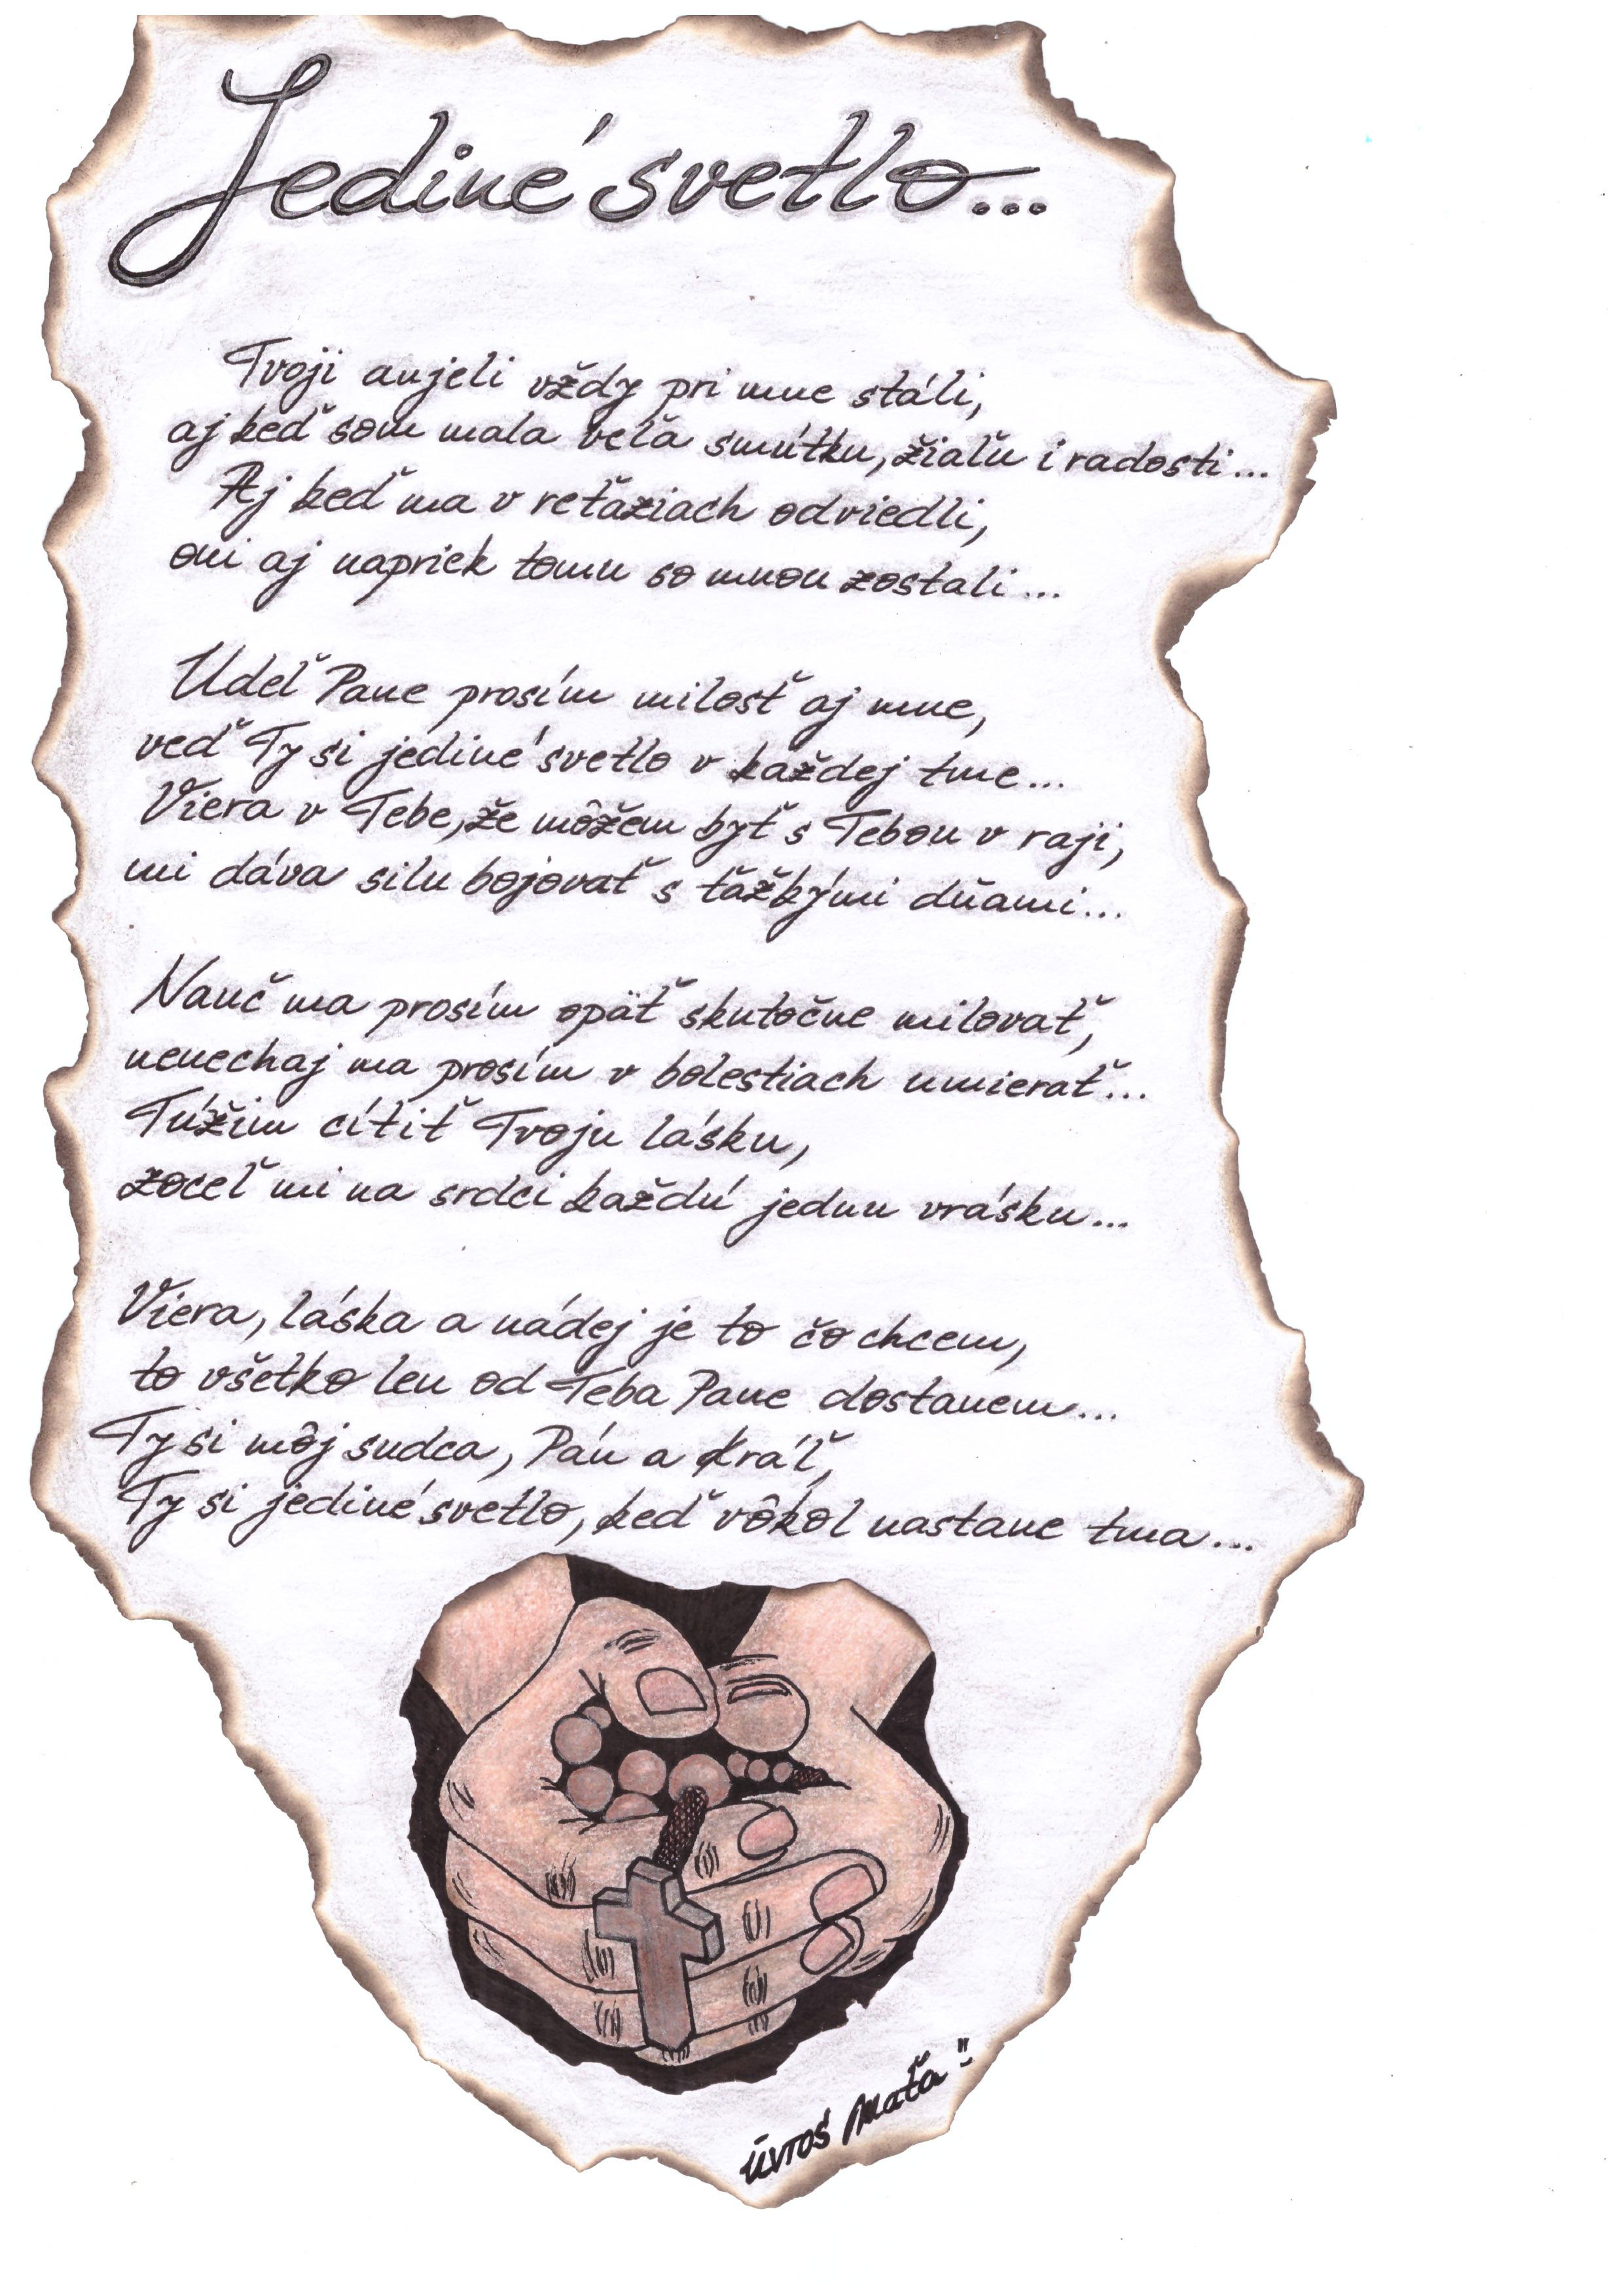 Jediné svetlo...
Tvoji anjeli vždy pri mne stáli,
aj keď som mala veľa smútku, žiaľu i radosti...
Aj keď ma v reťaziach odviedli,
oni aj napriek tomu so mnou zostali...
Udeľ Pane prosím milosť aj mne,
veď Ty si jediné svetlo v každej tme...
Viera v Tebe, že môžem byť s Tebou v raji,
mi dáva silu bojovať s ťažkými dňami...
Nauč ma prosím opäť skutočne milovať,
nenechaj ma prosím v bolestiach umierať...
Túžim cítiť Tvoju lásku,
zoceľ mi na srdci každú jednu vrásku...
Viera, láska a nádej je to čo chcem,
to všetko len od Teba Pane dostanem...
Ty si môj sudca, Pán a Kráľ,
Ty si jediné svetlo, keď vôkol nastane tma...
Maťa